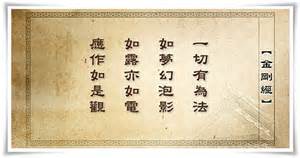 【金剛經】
一切有為法
如夢幻泡影
如露亦如電
應作如是觀